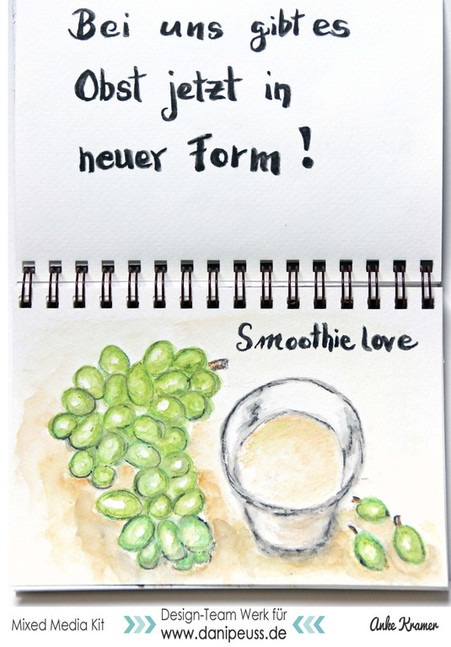 Bei uns gibt es
Obst jetzt in
neuer Form!
Smoothie Love
Mixed Media Kit
Design-Team Werk für
www.danipeuss.de
Anke Kramer